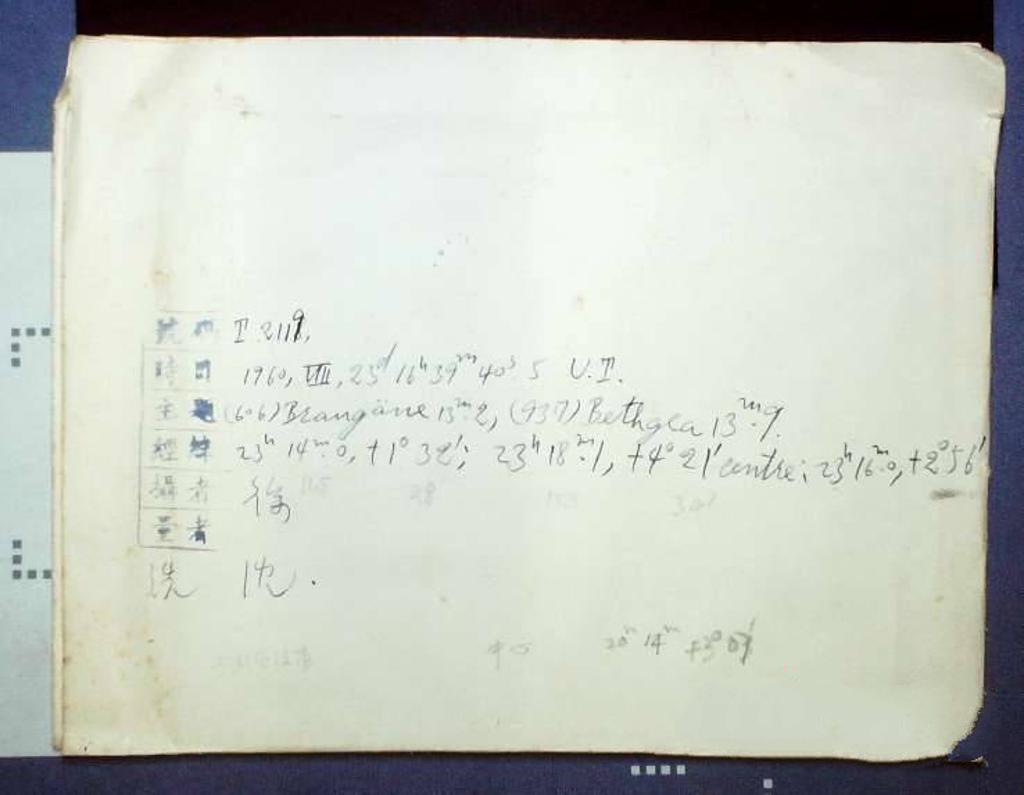 號碼 T. 2119.
時日 1960, VIII, 23ᵈ 16ʰ 39ᵐ 40ˢ.5 U.T.
主題 (606) Brangäne 13ᵐ.2, (937) Bethgea 13ᵐ.9.
經緯 23ʰ 14ᵐ.0, +1° 32'; 23ʰ 18ᵐ.1, +4° 21' centre: 23ʰ 16ᵐ.0, +2° 56'
攝者 徐
量者
洗 沈.
中心 20ʰ 14ᵐ